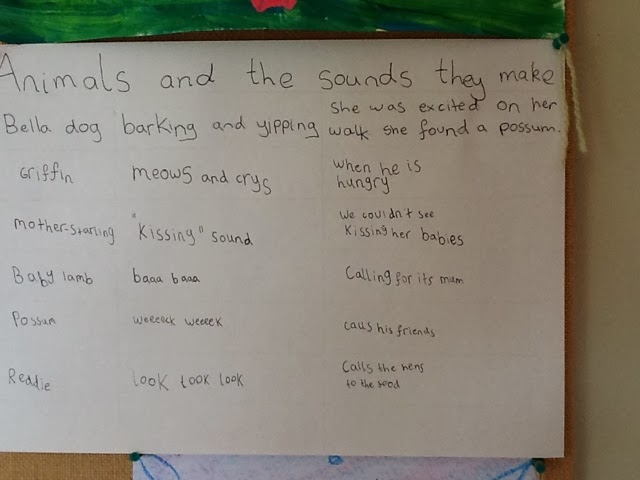 Animals and the sounds they make
Bella dog barking and yipping She was excited on her
walk she found a possum.
Griffin meows and crys when he is
hungry
mother-starling "Kissing" sound We couldn't see
Kissing her babies
Baby lamb baaa baaa Calling for its mum
Possum weeeeck weeeek caus his friends
Reddie look took look Calls the hens
to the food